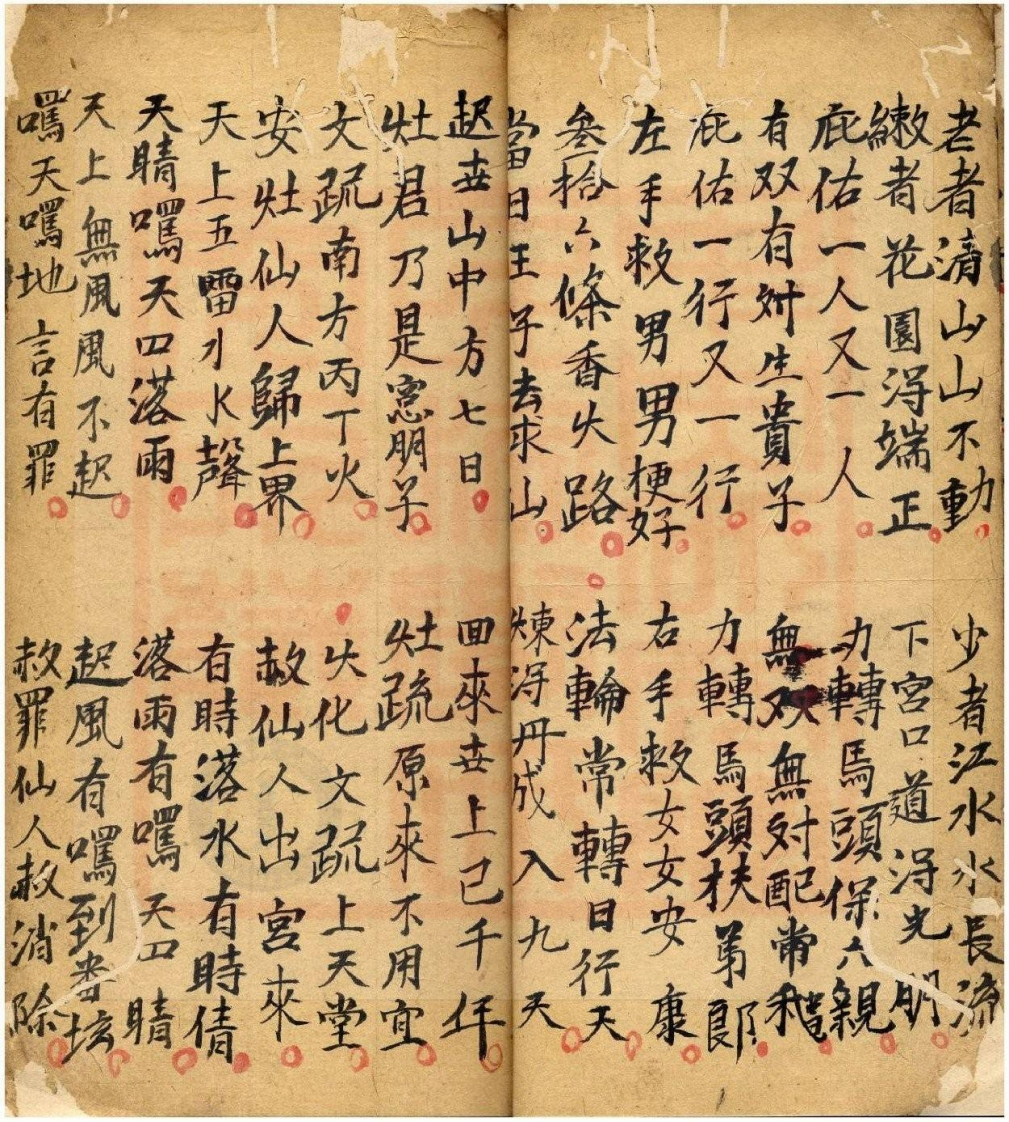 老者清山山不動 少者江水水長流
嫩者花園淂端正 下宮口道淂光明
庇佑一人又一人 力轉馬頭保六親
有双有対生貴子 無双無対配常
庇佑一行又一行 力轉馬頭扶弟郎
左手救男男梗好 右手救女女安康
叁拾六條香火路 法輪常轉日行天
當日王子去求山 煉淂丹成入九天
起在山中方七日 回來世上已千年
灶君乃是窓朋子 灶疏原來不用宜
文疏南方丙丁火 火化文疏上天堂
安灶仙人歸上界 赦仙人出宮來
天上五雷水聲 有時落水有時倩
天晴嘪天四落雨 落雨有嘪天四晴
天上無風風不起 起風有嘪到番垓
嘪天嘪地言有罪 赦罪仙人赦消除